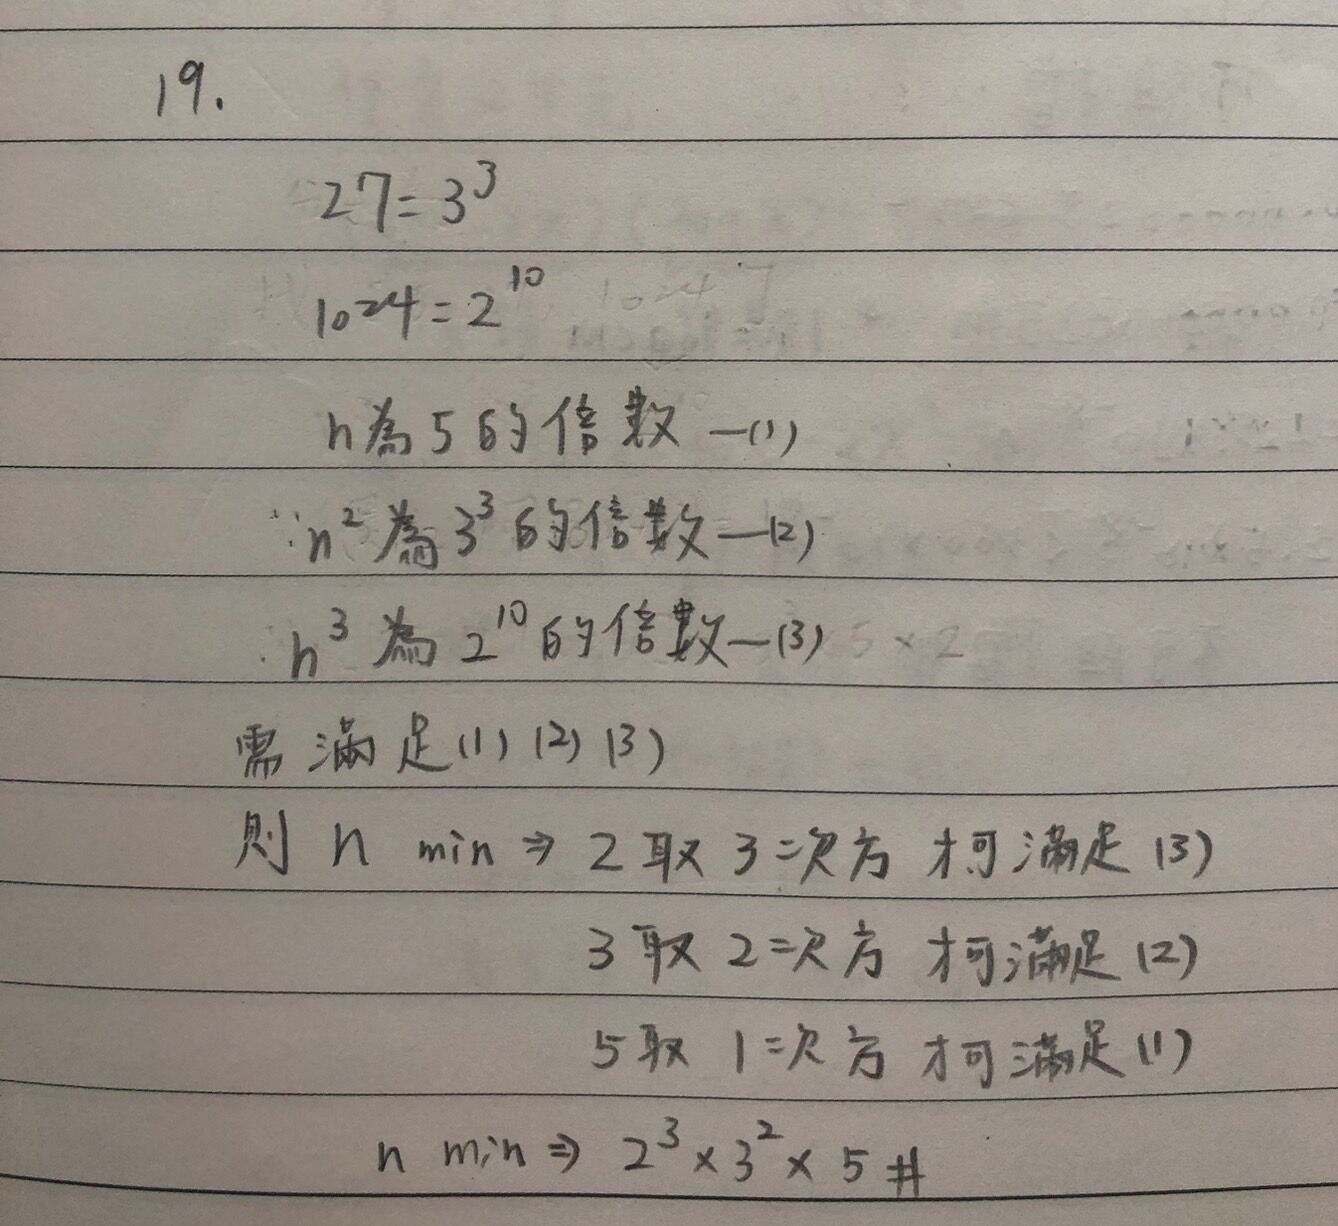 19.
27=3³
1024=2¹⁰
n為5的倍數 —(1)
n²為3³的倍數—(2)
n³為2¹⁰的倍數—(3) 5×2
需滿足(1)(2)(3)
則 n min ⇒ 2取3次方才可滿足(3)
3取2次方才可滿足(2)
5取1次方才可滿足(1)
n min ⇒ 2³×3²×5 #